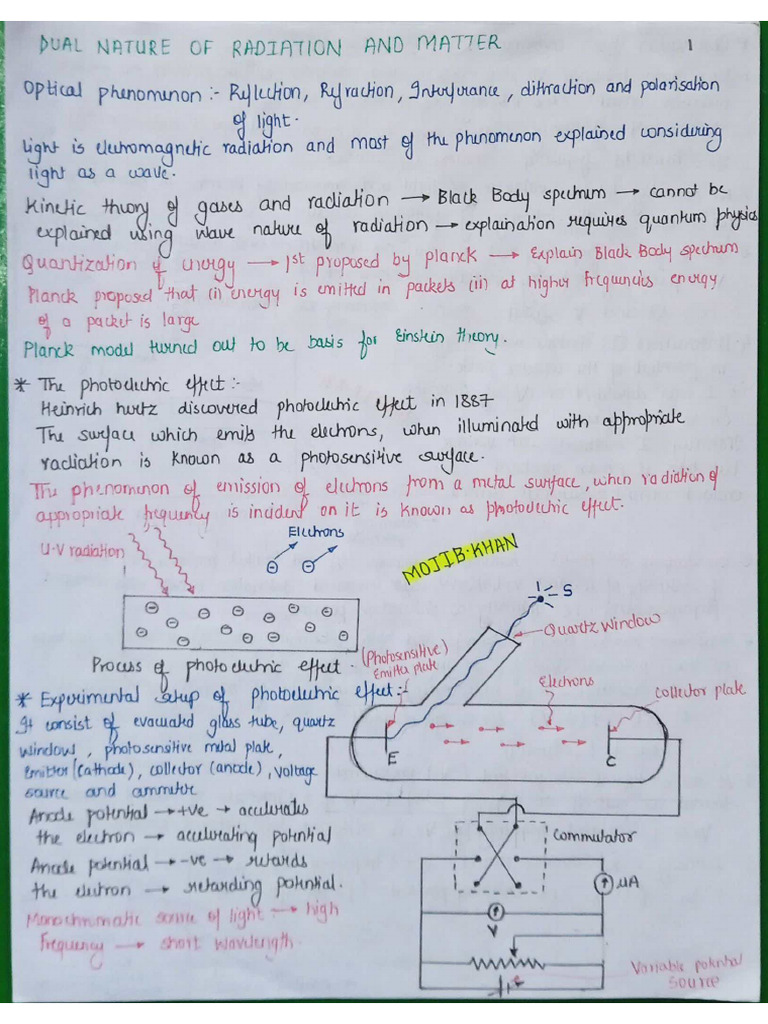 DUAL NATURE OF RADIATION AND MATTER 1
Optical phenomenon :- Reflection, Refraction, Interferance, diffraction and polarisation
of light.
Light is electromagnetic radiation and most of the phenomenon explained considering
light as a wave.
Kinetic theory of gases and radiation → Black Body spectrum → cannot be
explained using wave nature of radiation → explaination requires quantum physics
Quantization of energy → 1st proposed by planck → Explain Black Body spectrum
Planck proposed that (i) energy is emitted in packets (ii) at higher frequencies energy
of a packet is large
Planck model turned out to be basis for Einstein theory.
* The photoelectric effect :-
Heinrich hurtz discovered photoelectric effect in 1887
The surface which emits the electrons, when illuminated with appropriate
radiation is known as a photosensitive surface.
The phenomenon of emission of electrons from a metal surface, when radiation of
appropriate frequency is incident on it is known as photoelectric effect.
U.V radiation
Electrons
MOJIB.KHAN
S
Quartz window
Process of photoelectric effect.
(Photosensitive)
Emitter plate
Electrons
Collector plate
E
C
* Experimental setup of photoelectric effect :-
It consist of evacuated glass tube, quartz
window, photosensitive metal plate,
emitter (cathode), collector (anode), voltage
source and ammeter
Anode potential → +ve → accelerates
the electron → accelerating potential
Anode potential → -ve → retards
the electron → retarding potential.
Monochromatic source of light → high
Frequency → short wavelength.
Commutator
μA
V
Variable potential
source